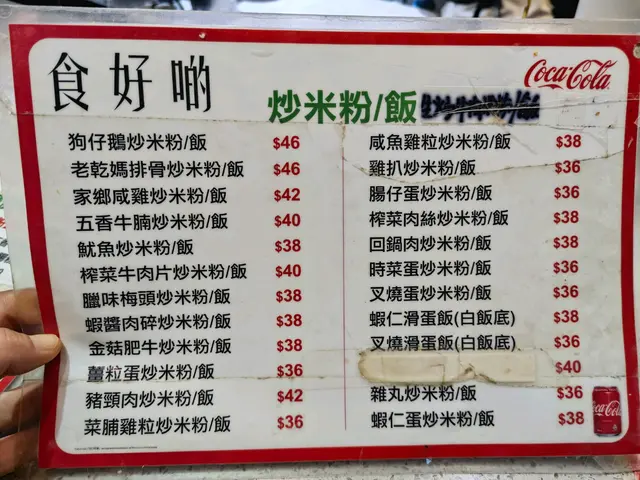 食好啲
Coca-Cola
炒米粉/飯
狗仔鵝炒米粉/飯 $46
老乾媽排骨炒米粉/飯 $46
家鄉咸雞炒米粉/飯 $42
五香牛腩炒米粉/飯 $40
魷魚炒米粉/飯 $38
榨菜牛肉片炒米粉/飯 $40
臘味梅頭炒米粉/飯 $38
蝦醬肉碎炒米粉/飯 $38
金菇肥牛炒米粉/飯 $38
薑粒蛋炒米粉/飯 $36
豬頸肉炒米粉/飯 $42
菜脯雞粒炒米粉/飯 $36
咸魚雞粒炒米粉/飯 $38
雞扒炒米粉/飯 $36
腸仔蛋炒米粉/飯 $36
榨菜肉絲炒米粉/飯 $38
回鍋肉炒米粉/飯 $38
時菜蛋炒米粉/飯 $36
叉燒蛋炒米粉/飯 $36
蝦仁滑蛋飯(白飯底) $38
叉燒滑蛋飯(白飯底) $36
$40
雜丸炒米粉/飯 $36
蝦仁蛋炒米粉/飯 $38